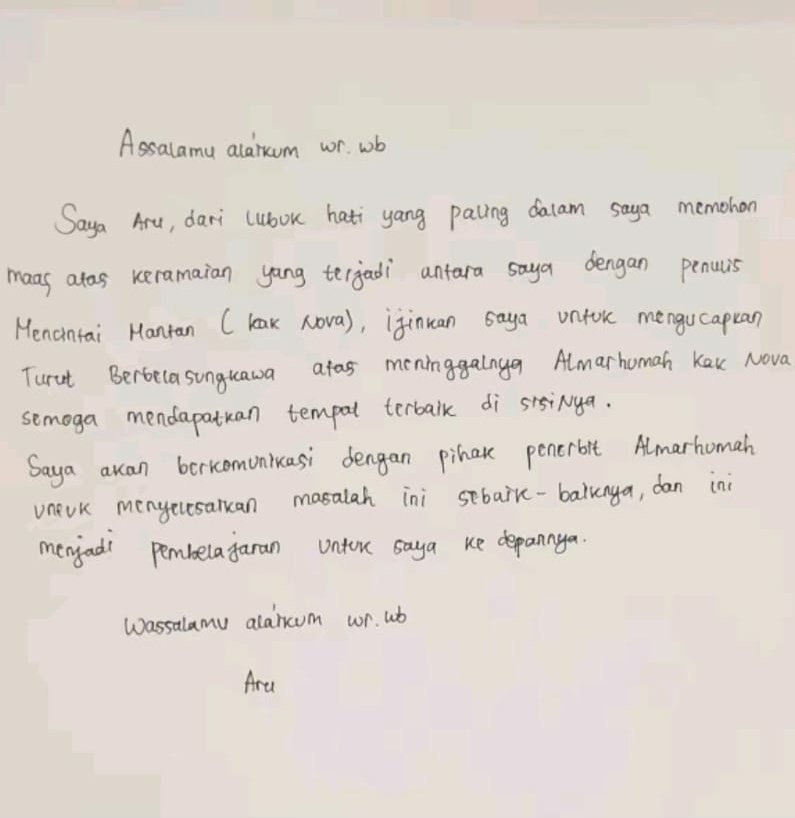 Assalamu alaikum wr. wb
Saya Aru, dari lubuk hati yang paling dalam saya memohon
maaf atas keramaian yang terjadi antara saya dengan penulis
Mencintai Mantan ( kak Nova), ijinkan saya untuk mengucapkan
Turut Berbelasungkawa atas meninggalnya Almarhumah kak Nova
semoga mendapatkan tempat terbaik di sisiNya.
Saya akan berkomunikasi dengan pihak penerbit Almarhumah
untuk menyelesaikan masalah ini sebaik-baiknya, dan ini
menjadi pembelajaran untuk saya ke depannya.
Wassalamu alaikum wr. wb
Aru